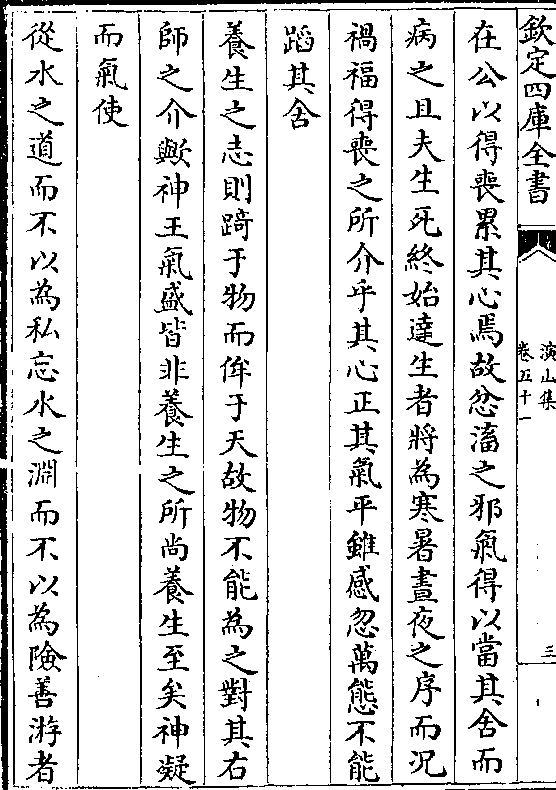 欽定四庫全書
演山集
卷五十一
三
在公以得喪累其心焉故忿滀之邪氣得以當其舍而
病之且夫生死終始達生者將為寒暑晝夜之序而況
禍福得喪之所介乎其心正其氣平雖感忽萬態不能
蹈其舍
養生之志則踦于物而侔于天故物不能為之對其右
師之介歟神王氣盛皆非養生之所尚養生至矣神凝
而氣使
從水之道而不以為私忘水之淵而不以為險善游者